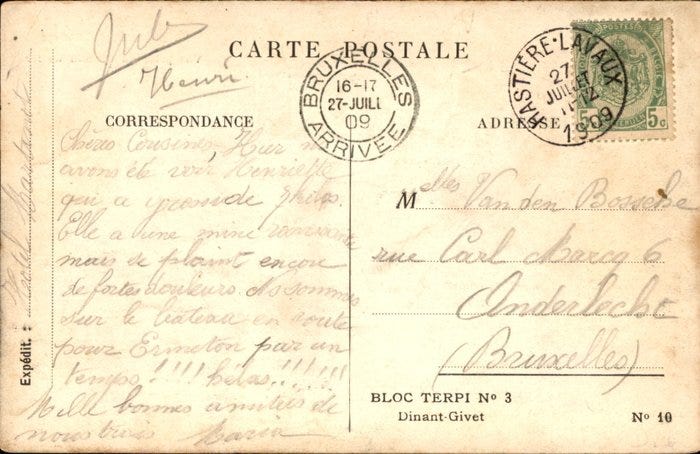 Jules
Henri
CARTE POSTALE
BRUXELLES
16-17
27-JUILL
09
ARRIVÉE
HASTIÈRE-LAVAUX
27
JUILLET
11-12
1909
5c 5c
CORRESPONDANCE
ADRESSE
Chères Cousines, Hier n.
avons été voir Henriette
qui a grossi de kilos.
Elle a une mine
mais se plaint encore
de fortes douleurs. Ns sommes
sur le bateau en route
pour Ermeton par un
temps!!!! hélas!!!!!!
Mille bonnes amitiés de
nous trois Maria
Melles Van den Bossche
rue Carl Marcq 6
Anderlecht
(Bruxelles)
Expédit. :
Hotel
BLOC TERPI No 3
Dinant-Givet
No 10